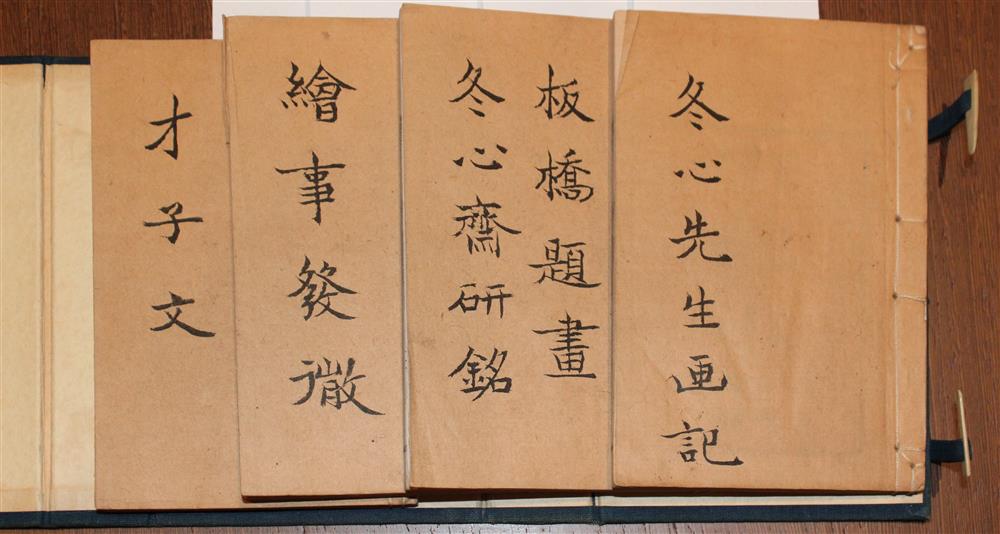 冬心先生画記
板橋題畫
冬心齋研銘
繪事發微
才子文